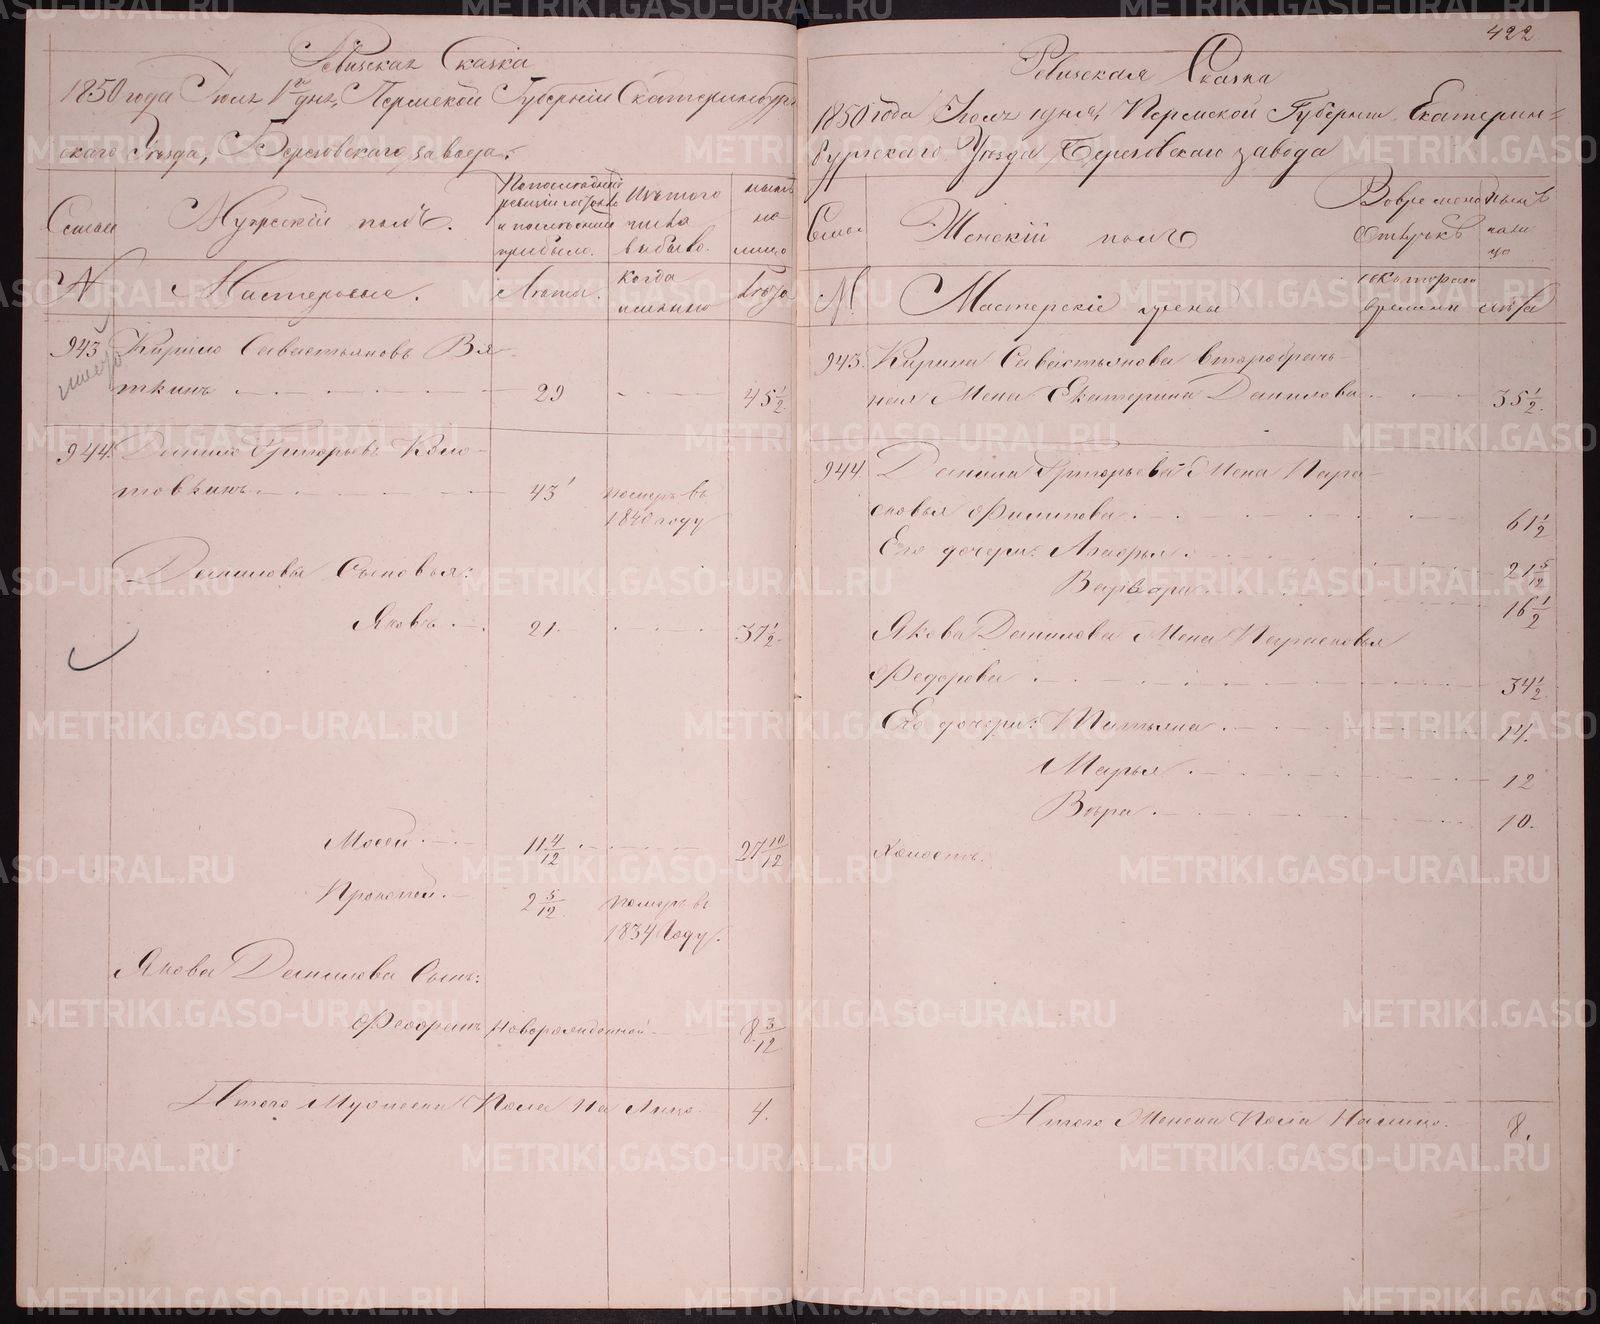 422
Ревизская Сказка
1850 года Июля 1го дня, Пермской Губернии Екатеринбург
скаго Уезда, Березовскаго завода.
Семьи
Мужеской полъ.
По последней
ревизіи состояло
и после оной
прибыло.
Изъ того
числа
выбыло.
ныне
на
лицо
№
Мастеровые.
Лета.
когда
именно
Лета
943
Кирило Савастьяновъ Вя-
ткинъ
29
45 1/2
944.
Данило Григорьевъ Коло-
товкинъ
43
померъ въ
1840 году
Даниловы Сыновья:
Яковъ
21.
37 1/2.
Мосей
11 4/12
27 10/12
Прокопей.
2 5/12
померъ въ
1834 году.
Якова Данилова Сынъ:
Новорожденной
8 3/12
Итого Мужеска Пола На Лицо.
4.
Ревизская Сказка
1850 года Июля 1 дня, Пермской Губерніи Екатерин=
бургскаго Уезда Березовскаго завода
Семьи
Женскій полъ
Во временной
отлучкѣ
ныне
нали
цо
№.
Мастерскіе жены
съ котораго
времени
лѣта
943.
Кирила Савастьянова второбрач-
ная Жена Екатерина Данилова
35 1/2.
944.
Данила Григорьева Жена Пара-
сковья Филипова
61 1/2
Его дочери:
21 5/12
Варвара
16 1/2
Якова Данилова Жена Парасковья
Федорова
34 1/2.
Его дочери: Татьяна
14.
Марья
12
Вѣра
10.
Холостъ.
Итого Женска Пола Налицо.
8.
METRIKI.GASO-URAL.RU